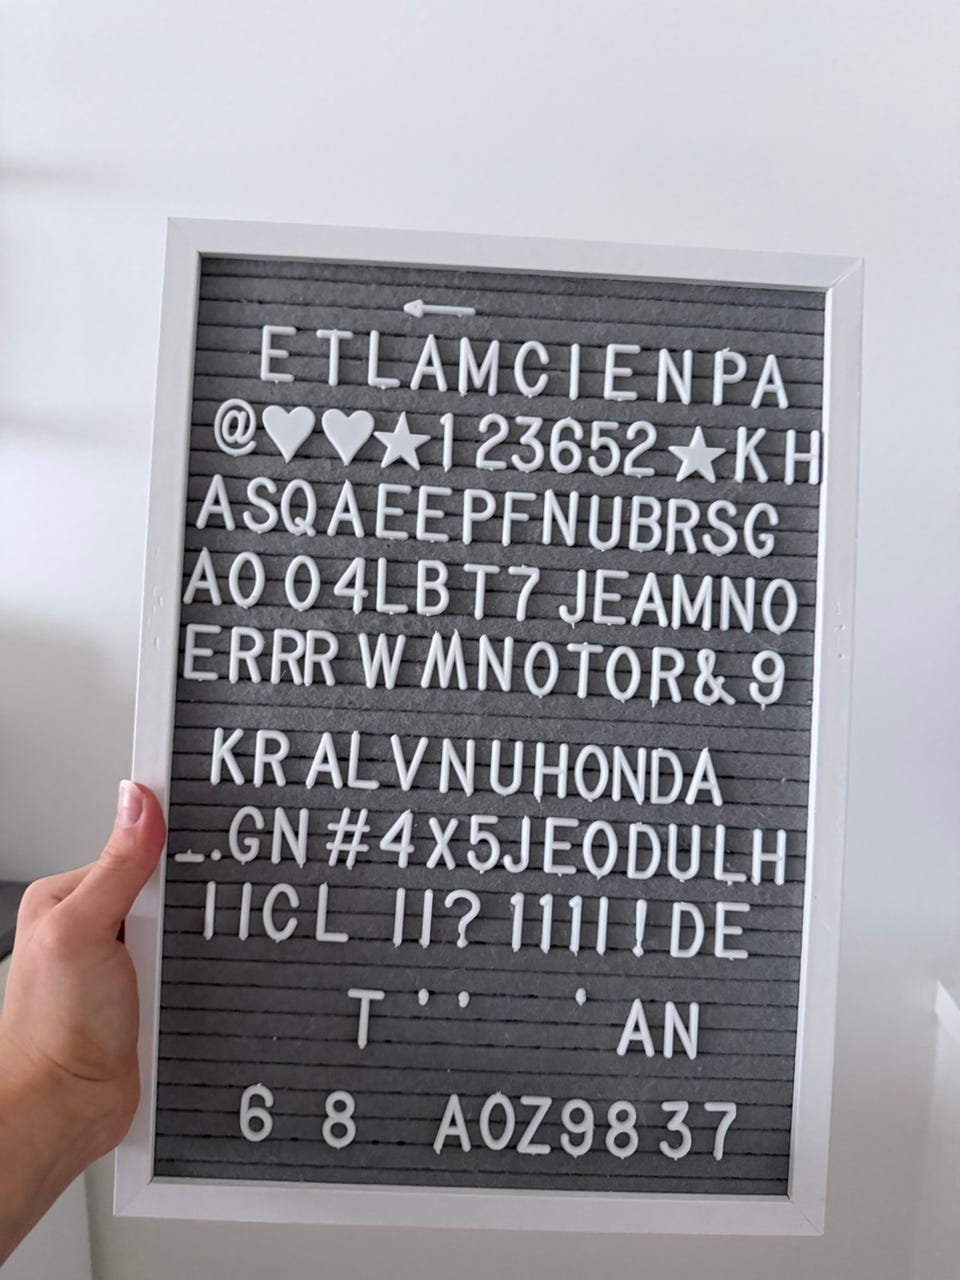 ←
ETLAMCIENPA
@♥♥★123652★KH
ASQAEEPFNUBRSG
AO O4LBT7 JEAMNO
ERRR WMNOTOR&9
KRALVNUHONDA
_.GN#4X5JEODULH
IICL II? 1111I!DE
T'' ' AN
6 8 AOZ9837